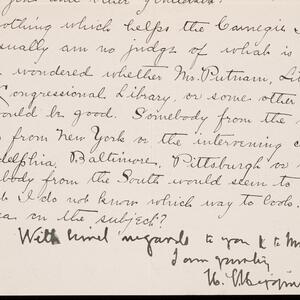 nothing which helps the Carnegie
usually am no judge of what is
wondered whether Mr. Putnam,
Congressional Library, or some other
would be good. Somebody from the
from New York or the intervening
Philadelphia, Baltimore, Pittsburgh or
body from the South would seem to
I do not know which way to look.
on the subject?
With kind regards to you & to
I am